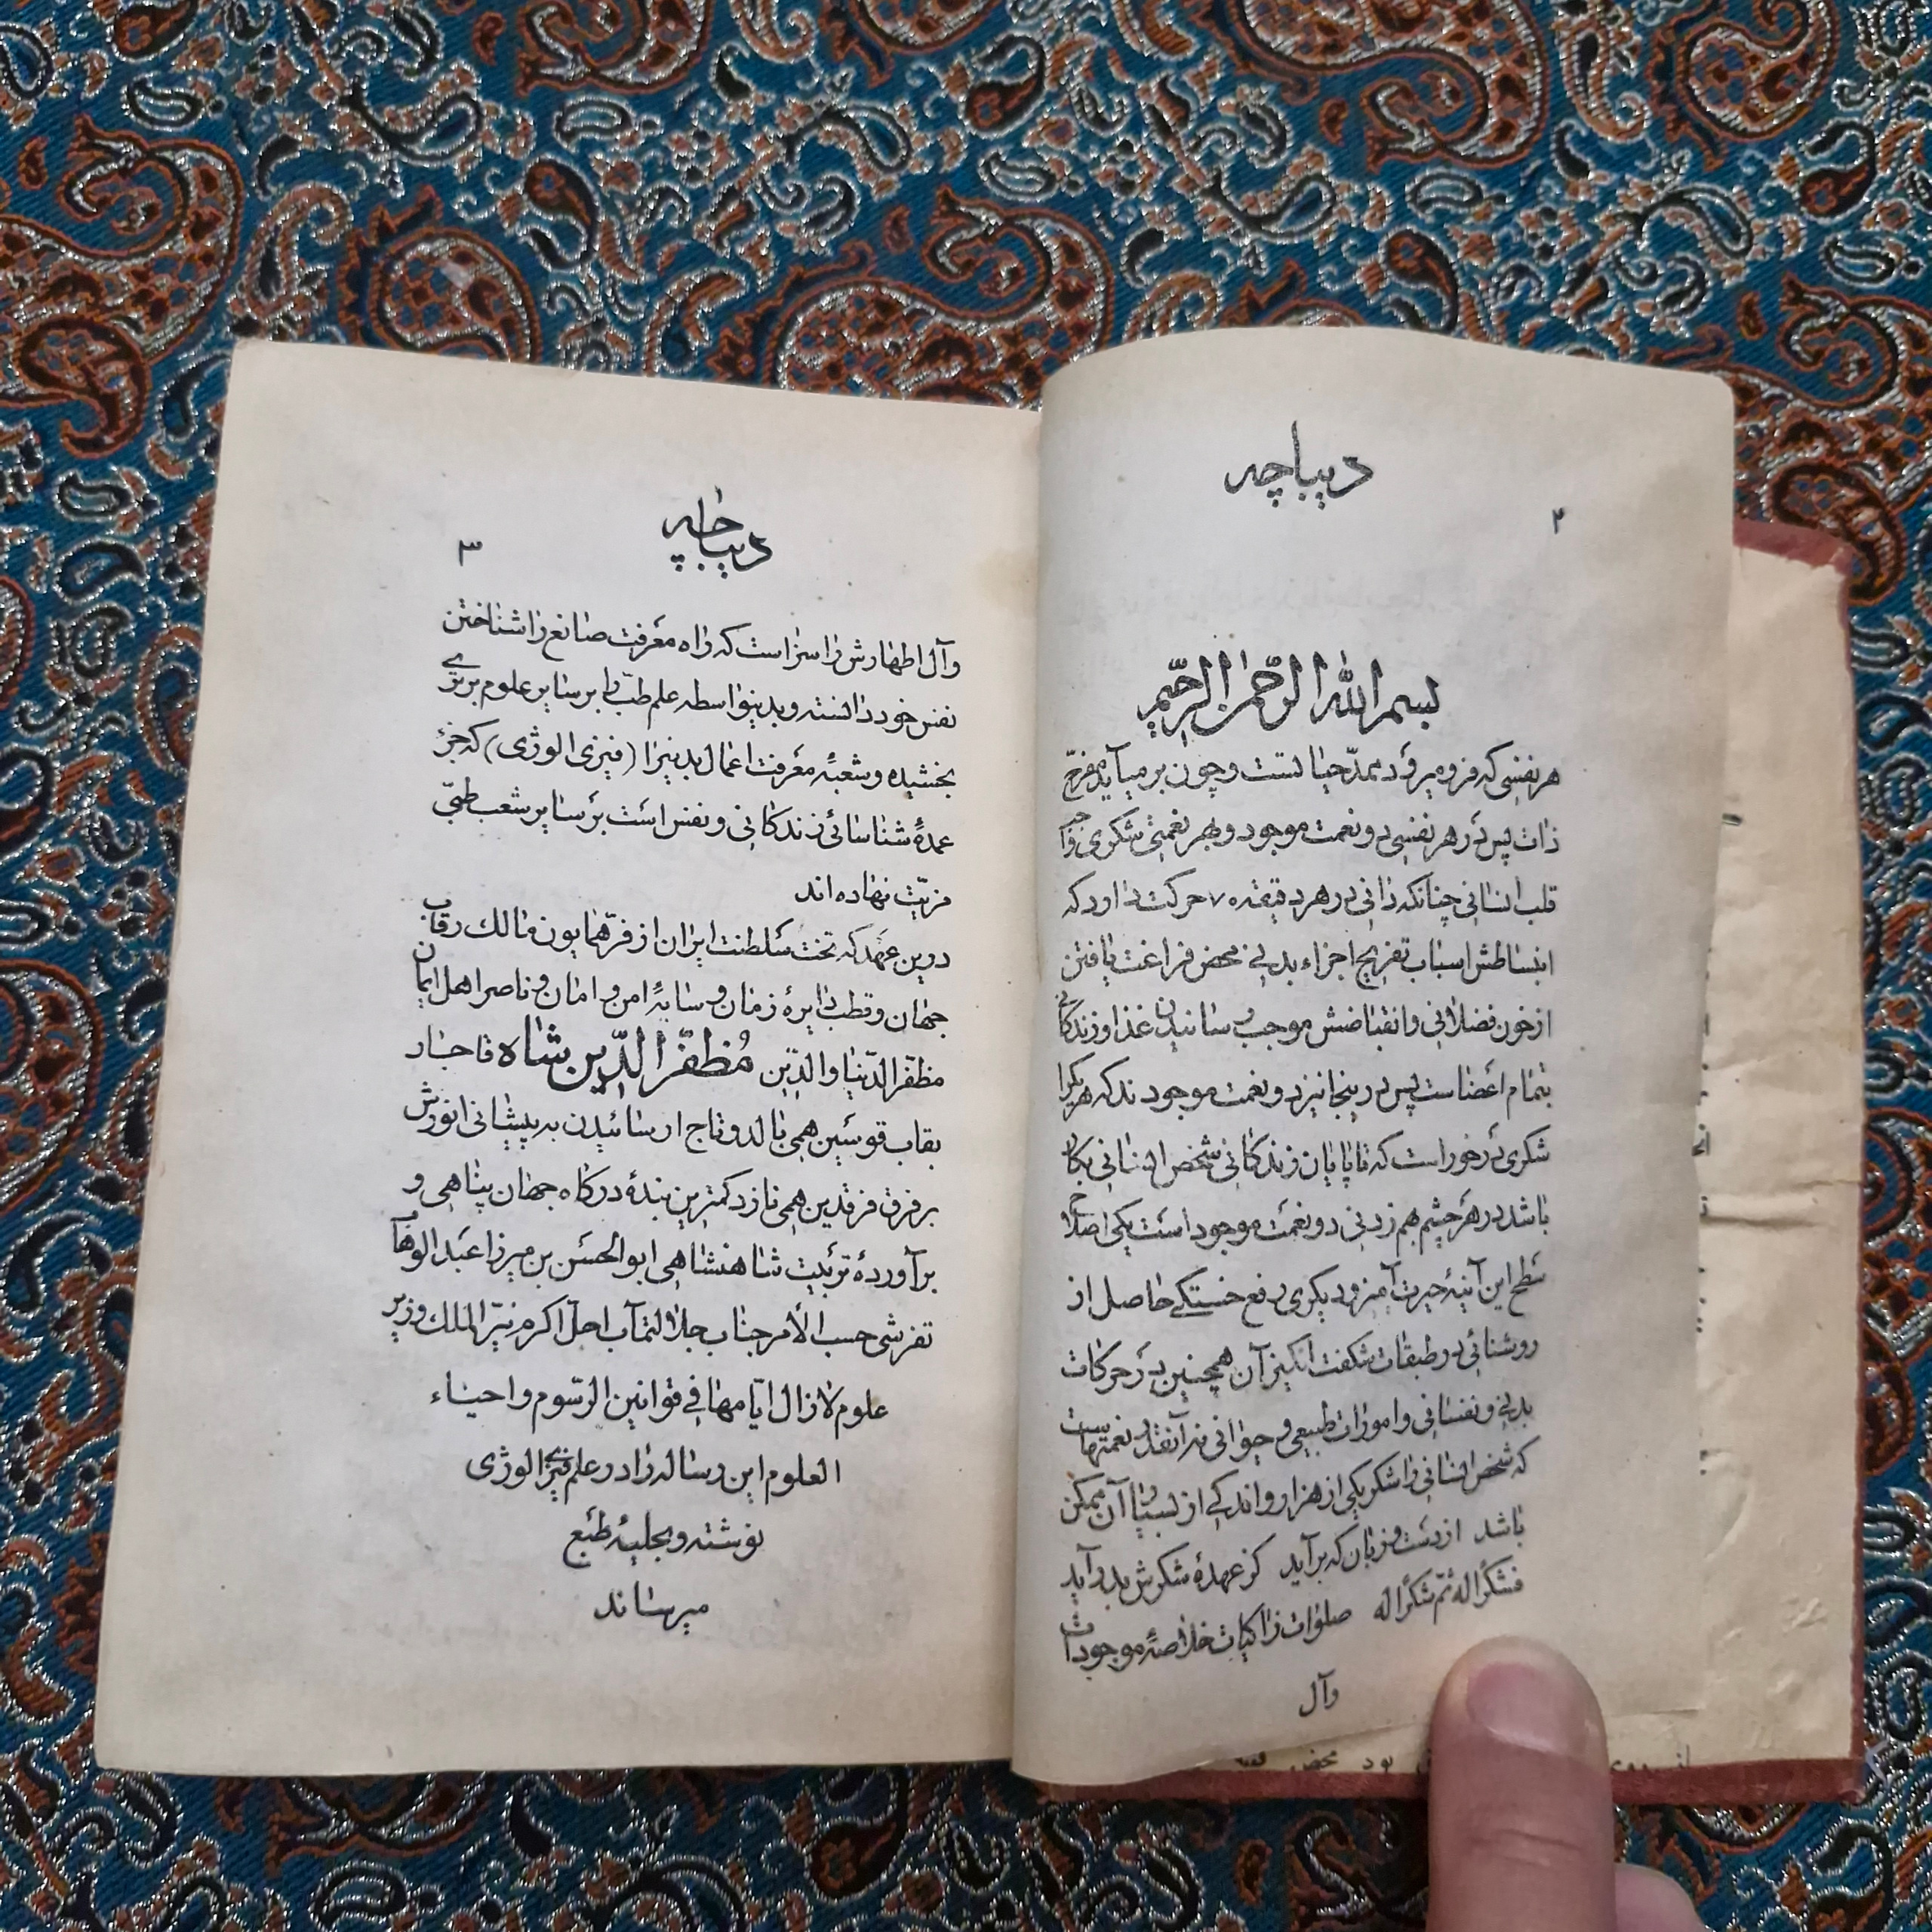 دیباچه
۲
بسم الله الرحمن الرحیم
هر نفسی که فرو میرود ممد حیاتست و چون بر میآید مفرح
ذات پس در هر نفسی دو نعمت موجود و بهر نعمتی شکری واجب
قلب انسانی چنانکه دانی در هر دقیقه ۷۰ حرکت دارد که
انبساطش اسباب تفریح اجزاء بدنی محض فراغت یافتن
از خون فضلانی و انقباضش موجب رسانیدن غذا و زندگانی
بتمام اعضاست پس در اینجا نیز دو نعمت موجودند که هر یکرا
شکری در خور است که تا پایان زندگانی شخص انسانی بکار
باشد در هر چشم بهم زدنی دو نعمت موجود است یکی اصلاح
سطح این آینهٔ حیرت آمیز و دیگری رفع خستگی حاصل از
روشنائی در طبقات شگفت انگیز آن همچنین در حرکات
بدنی و نفسانی و امورات طبیعی و حیوانی نه آنقدر نعمتهاست
که شخص انسانی را شکر یکی از هزار و اندکی از بسیار آن ممکن
باشد از دست و زبان که برآید کز عهدهٔ شکرش بدر آید
فشکراً له ثم شکراً له صلوات زاکیات خلاصهٔ موجودات
و آل
دیباچه
۳
و آل اطهارش را سزاست که راه معرفت صانع را شناختن
نفس خود دانسته و بدینواسطه علم طب را بر سایر علوم برتری
بخشیده و شعبهٔ معرفت اعمال بدنیرا (فیزی الوژی) که جزء
عمدهٔ شناسائی زندگانی و نفس است بر سایر شعب طبی
مزیت نهاده اند
درین عهد که تخت سلطنت ایران از فر همایون مالک رقاب
جهان و قطب دایرهٔ زمان و سایهٔ امن و امان و ناصر اهل ایمان
مظفر الدنیا والدین مُظفّر الدّین شاه قاجار
بقاب قوسین همی بالد و تاج از سائیدن به پیشانی انورش
بر فرق فرقدین همی نازد کمترین بندهٔ درگاه جهان پناهی و
برآوردهٔ تربیت شاهنشاهی ابوالحسن بن میرزا عبدالوهاب
تفرشی حسب الأمر جناب جلالتمآب اجل اکرم نیر الملک وزیر
علوم لازال ایامها فی قوانین الرسوم و احیاء
العلوم این رساله را در علم فیزی الوژی
نوشته و بحلیهٔ طبع
میرساند